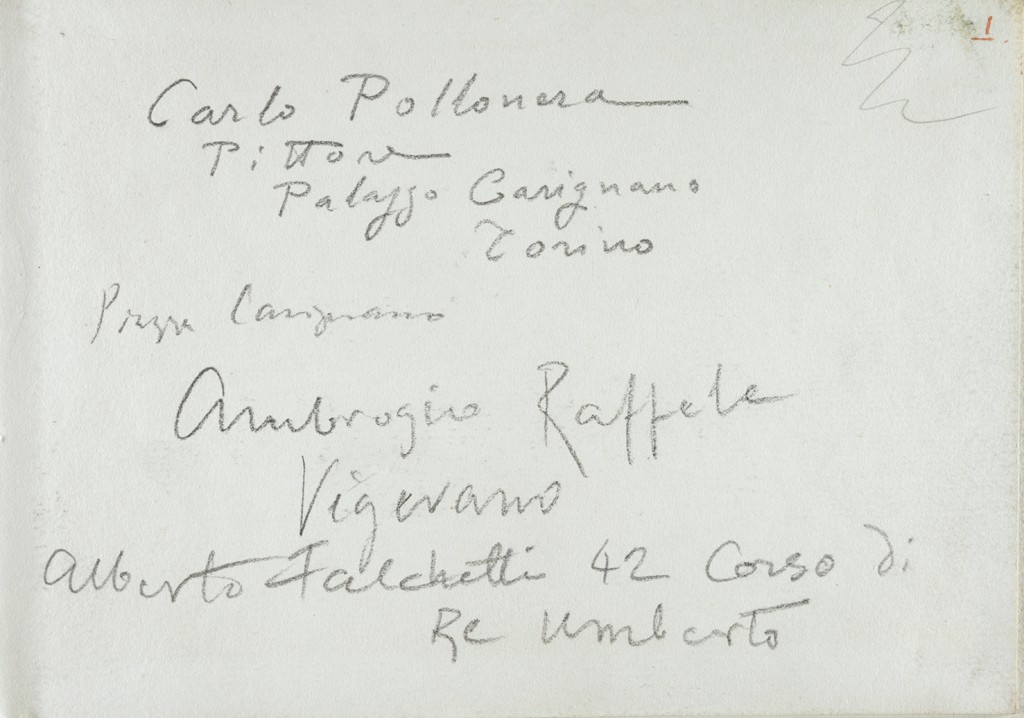 1
Carlo Pollonera
Pittore
Palazzo Carignano
Torino
Piazza Carignano
Ambrogio Raffele
Vigevano
Alberto Falchetti 42 Corso di
Re Umberto